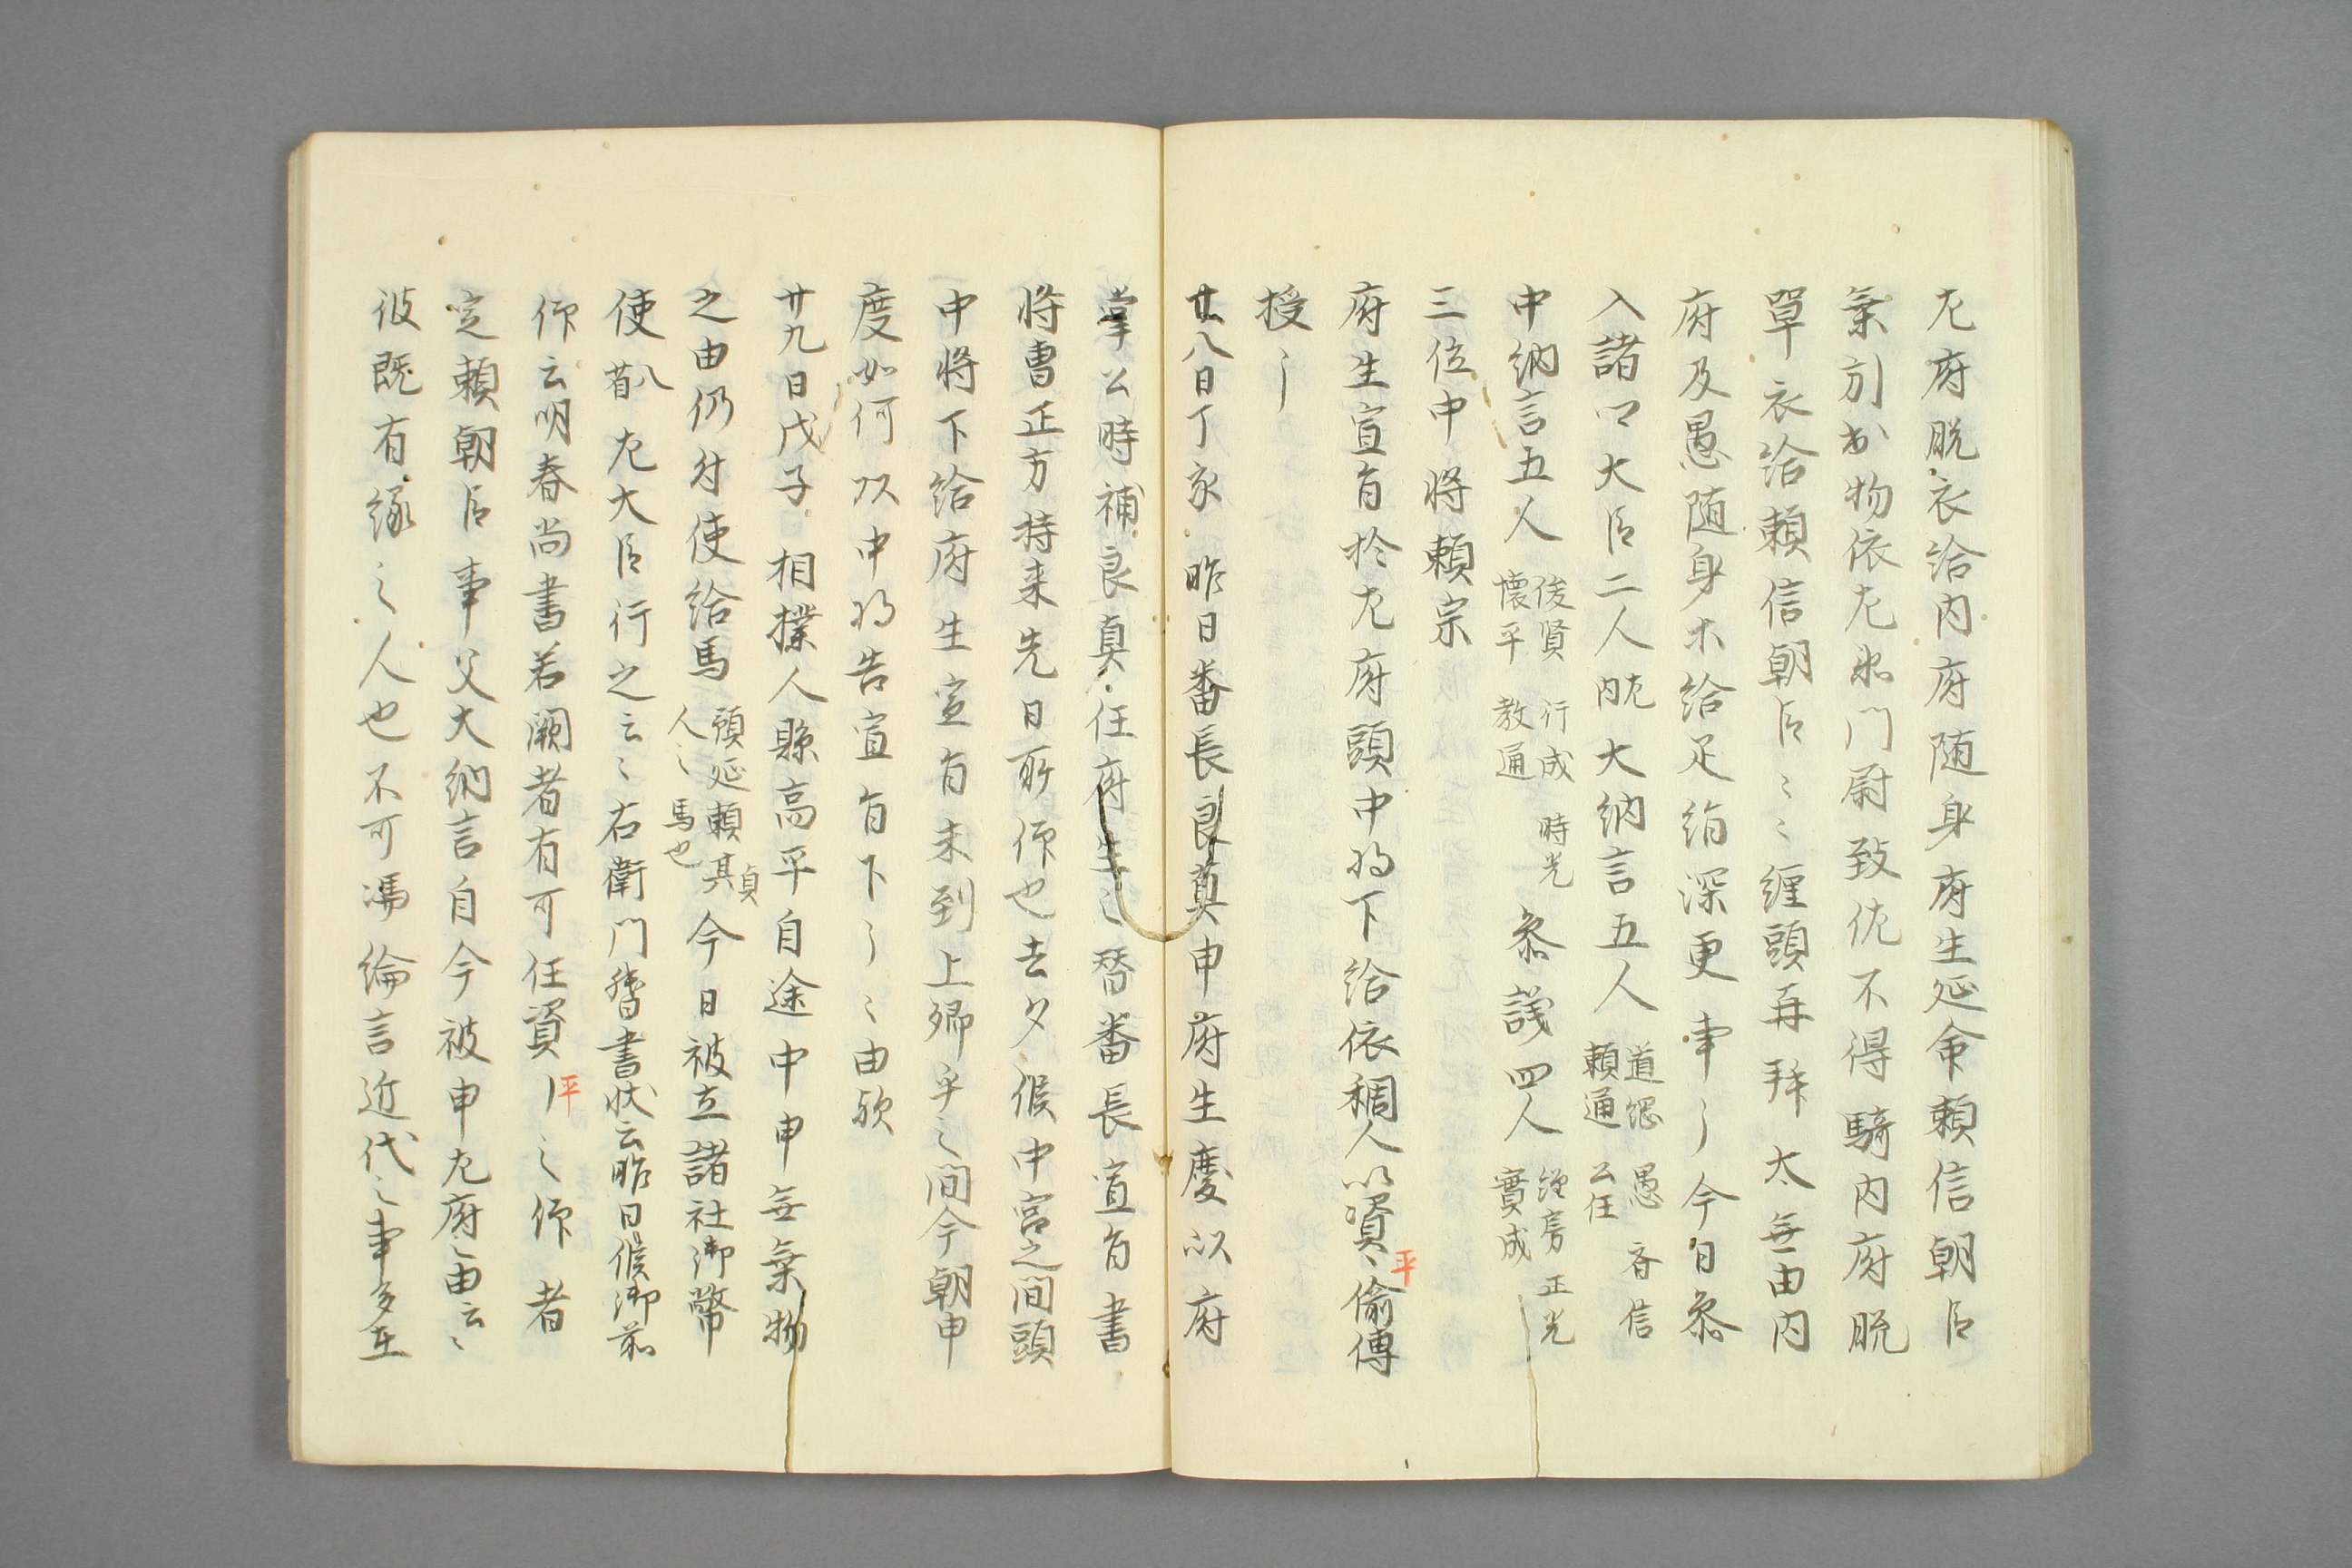 左府脱衣給内府随身府生延命頼信朝臣
無別出物依左衛門尉致佐不得騎内府脱
単衣給頼信朝臣〻〻纏頭再拝太無由内
府及愚随身木給疋絹深更事了今日参
入諸卿大臣二人左内大納言五人道綱愚斉信頼通公任
中納言五人俊賢行成時光懐平教通参議四人経房正光實成
三位中将頼宗
府生宣旨於左府頭中将下給依稠人以資〻平偸傳
授了
廿八日丁亥昨日番長良真申府生慶以府
掌公時補良真任府生之替番長宣旨書
将曹正方持来先日所仰也去夕候中宮之間頭
中将下給府生宣旨未到上卿乎之間今朝申
度如何以中将告宣旨下了之由歟
廿九日戊子相撲人縣高平自途中申無乗物
之由仍付使給馬預延頼真其人之馬也今日被立諸社御幣
使八省左大臣行之云〻右衛門督書状云昨日候御前
仰云明春尚書若闕者有可任資平之仰者
定頼朝臣事父大納言自今被申左府之由云〻
彼既有縁之人也不可馮綸言近代之事多在